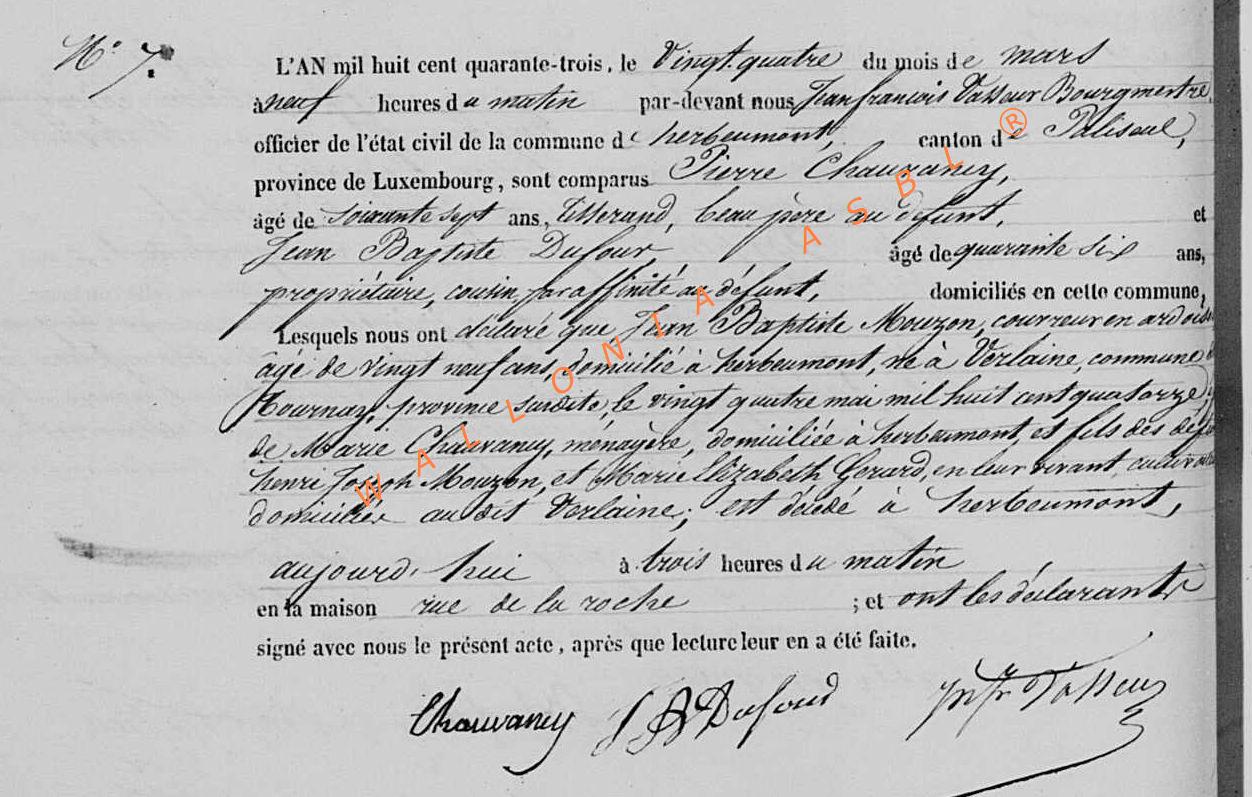 N° 7.
L'AN mil huit cent quarante-trois, le Vingt quatre du mois de mars
à neuf heures du matin par-devant nous Jean françois Vasseur Bourgmestre,
officier de l'état civil de la commune de herbeumont, canton de Paliseul,
province de Luxembourg, sont comparus Pierre Chauvancy,
âgé de soixante sept ans, tisserand, beau père au défunt, et
Jean Baptiste Dufour, âgé de quarante six ans,
propriétaire, cousin par affinité au défunt, domiciliés en cette commune,
Lesquels nous ont déclaré que Jean Baptiste Mouzon, couvreur en ardoise
âgé de vingt neuf ans, domicilié à herbeumont, né à Verlaine, commune
Tournay, province susdite, le vingt quatre mai mil huit cent quatorze,
de Marie Chauvancy, ménagère, domiciliée à herbeumont, et fils des
henri Joseph Mouzon, et Marie Elizabeth Gerard, en leur vivant,
domiciliés au dit Verlaine; est décédé à herbeumont,
aujourd'hui à trois heures du matin
en la maison rue de la roche ; et ont les déclarants
signé avec nous le présent acte, après que lecture leur en a été faite.
Chauvancy J B Dufour Jn fr Vasseur
WALLONIA ASBL ®